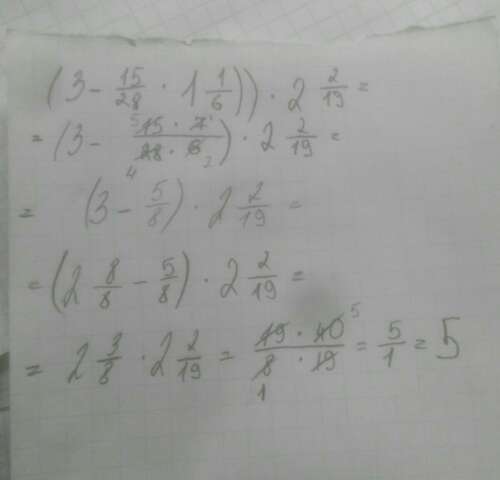 (3 - 15/28 · 1 1/6)) · 2 2/19 =
= (3 - 15 · 7/28 · 6) · 2 2/19 =
= (3 - 5/8) · 2 2/19 =
= (2 8/8 - 5/8) · 2 2/19 =
= 2 3/8 · 2 2/19 = 19 · 40/8 · 19 = 5/1 = 5